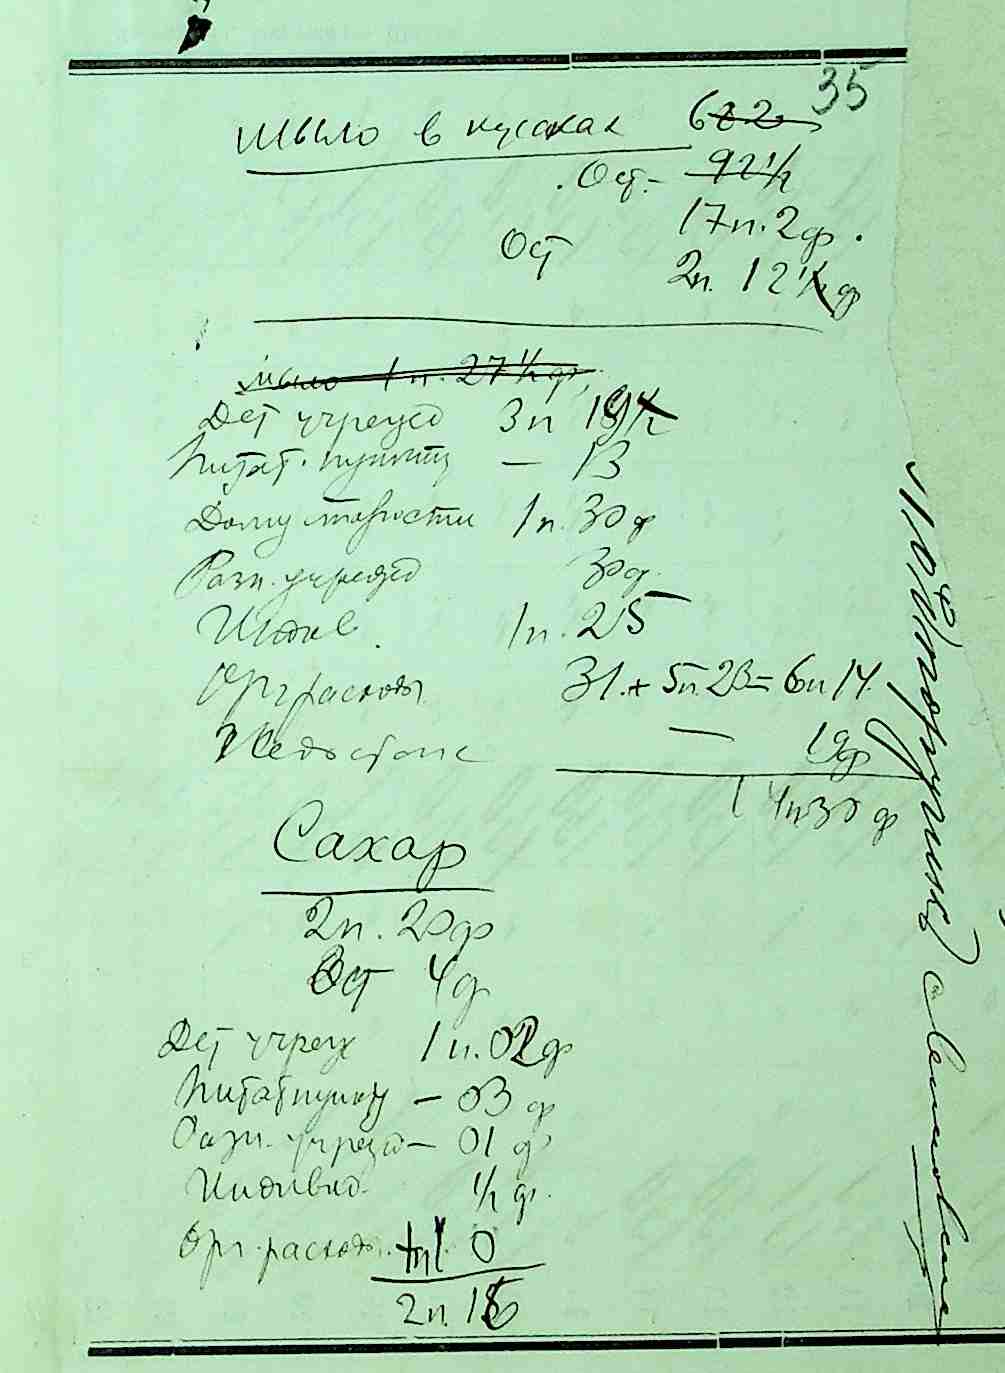 35
Мыло в кусках 622
Ост- 92 1/2
17п. 2ф.
Ост 2п. 12 1/2 ф
мыло 1п. 27 1/2 ф.
Дет учрежд 3п 19 1/2
Питат. пункты — 13
Дому 1п. 30ф
Разн. учрежд 30ф.
Индив. 1п. 25
Орг расходы 31. + 5п. 23 = 6п 14.
— 19ф
14п 30 ф
Сахар
2п. 20ф
Ост 4ф
Дет учреж 1п. 02ф
Питат пункт — 03 ф
Разн. учрежд — 01 ф
Индивид. 1/2 ф.
Орг. расходы. 0
2п. 16